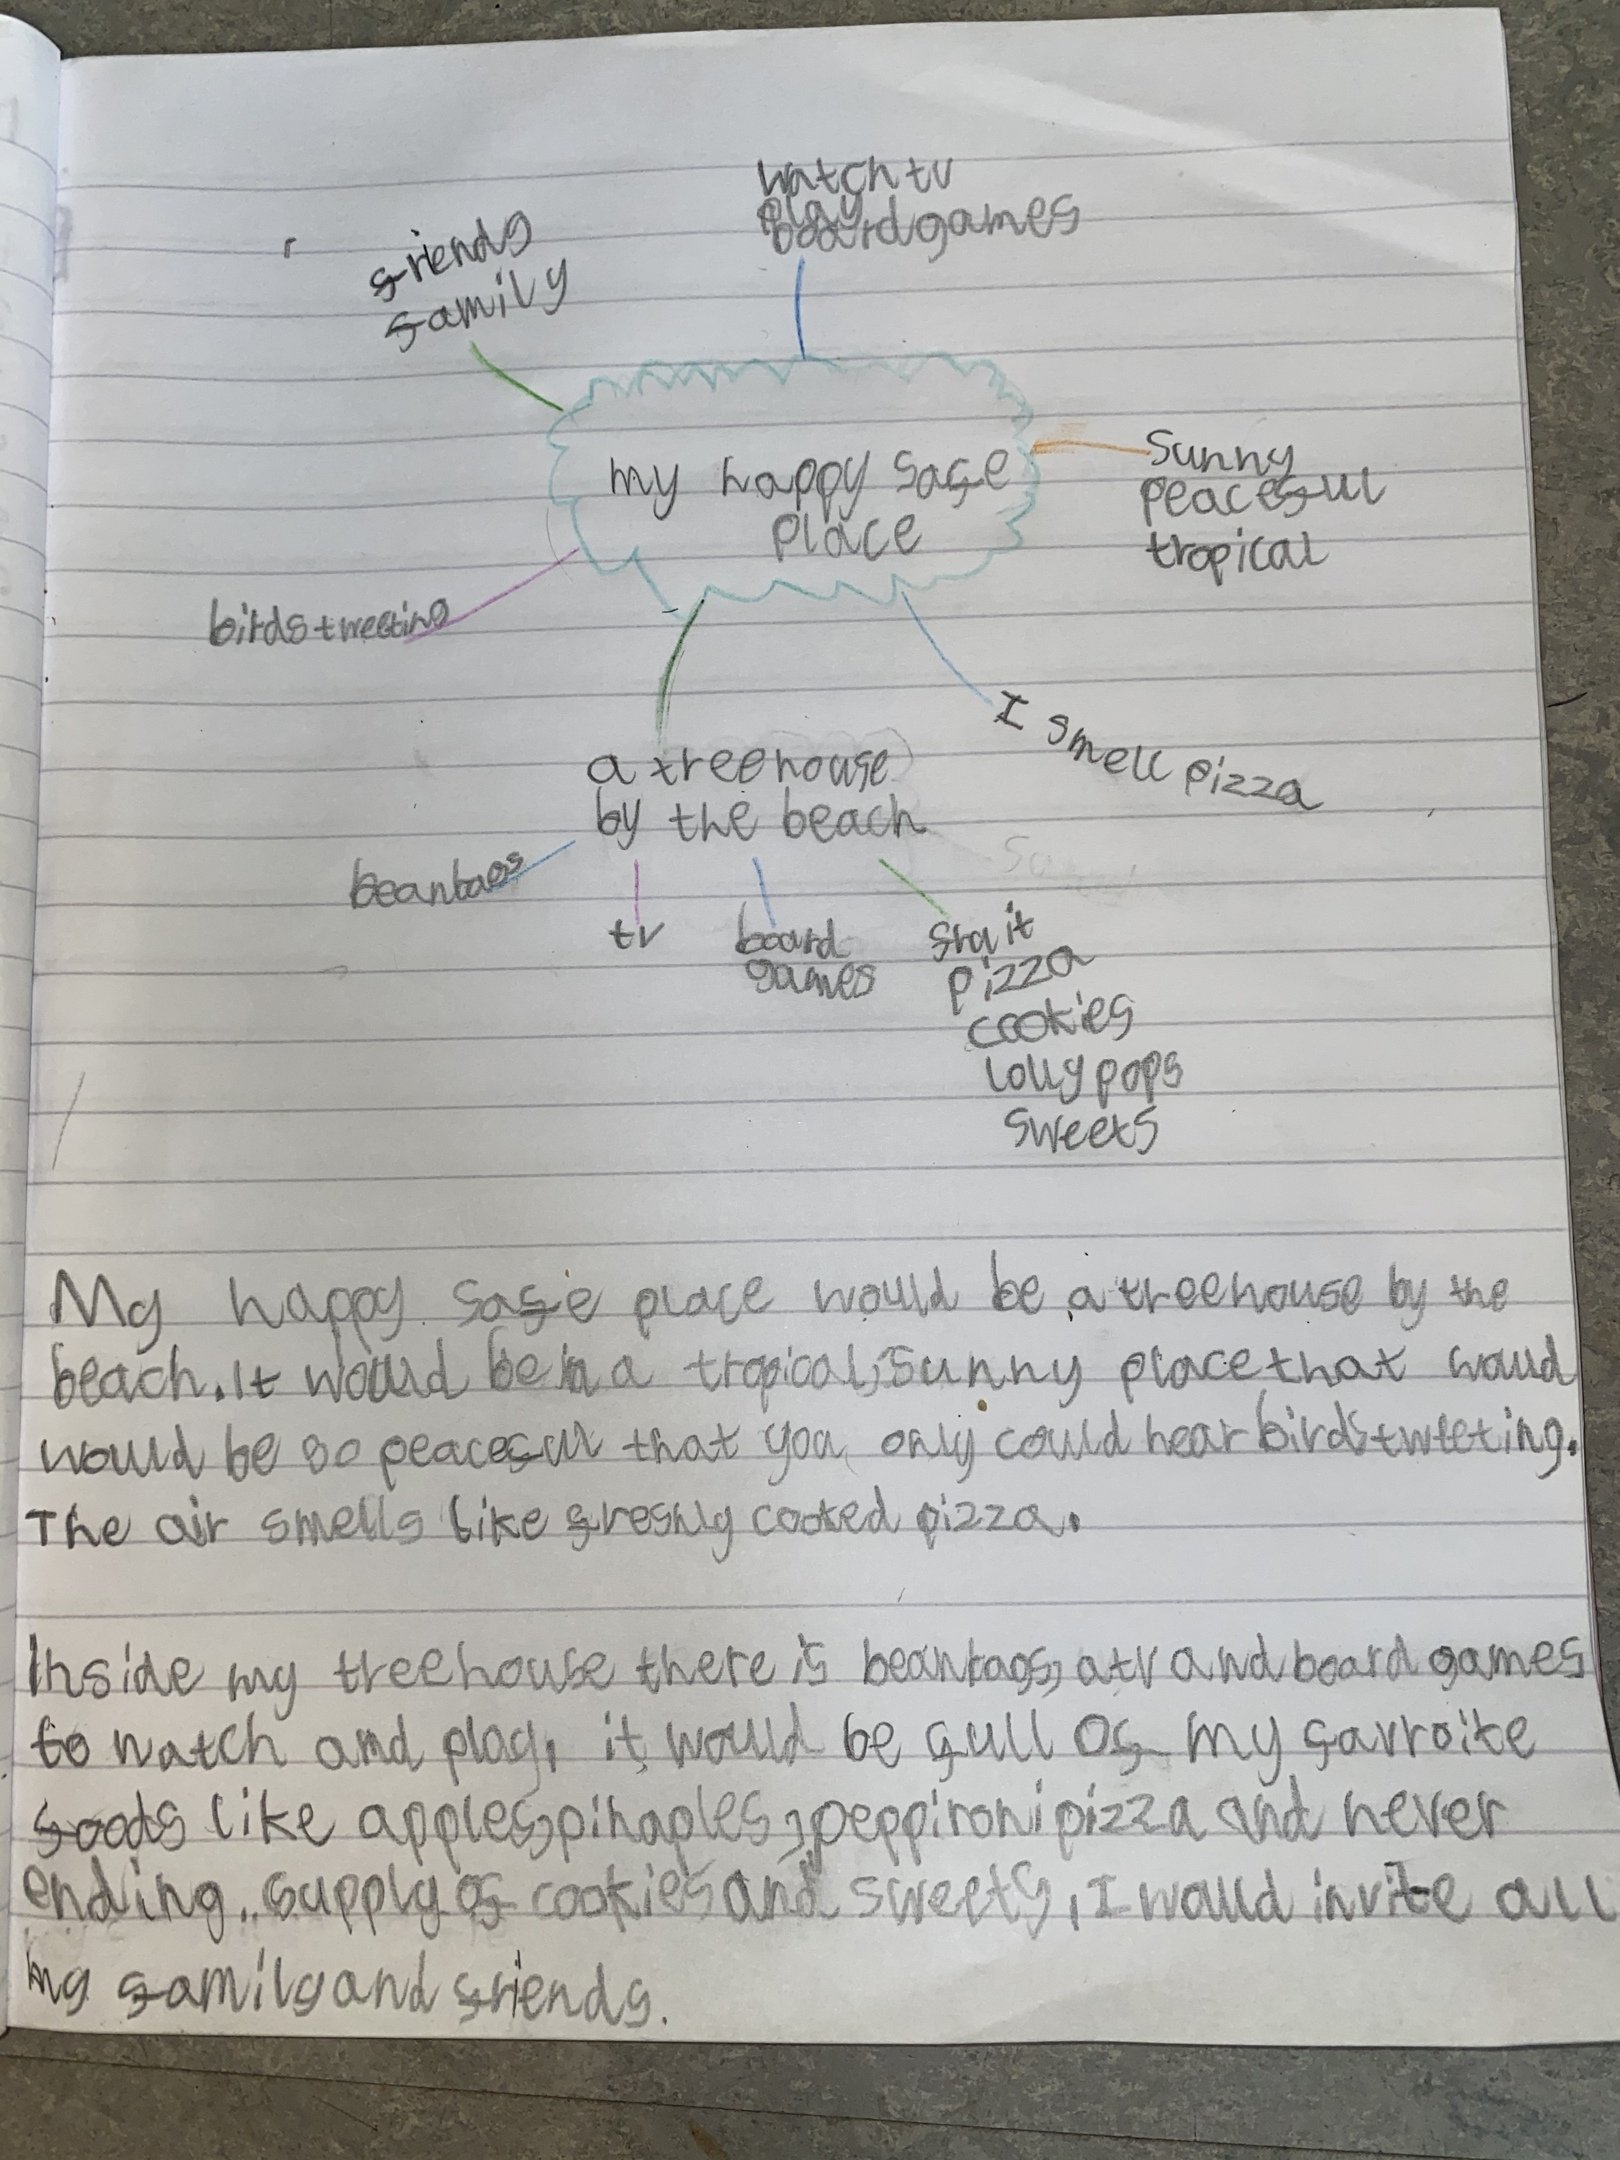 watch tv
play
board games
friends
family
my happy safe
place
Sunny
peaceful
tropical
birds tweeting
I smell pizza
a treehouse
by the beach
beanbags
tv
board
games
frait
pizza
cookies
lollypops
sweets
My happy safe place would be a treehouse by the
beach. It would be in a tropical, sunny place that would
would be so peaceful that you only could hear birds tweeting.
The air smells like freshly cooked pizza.
Inside my treehouse there is beanbags, a tv and board games
to watch and play, it would be full of my favroite
foods like apples, pinaples, peppironi pizza and never
ending supply of cookies and sweets, I would invite all
my family and friends.